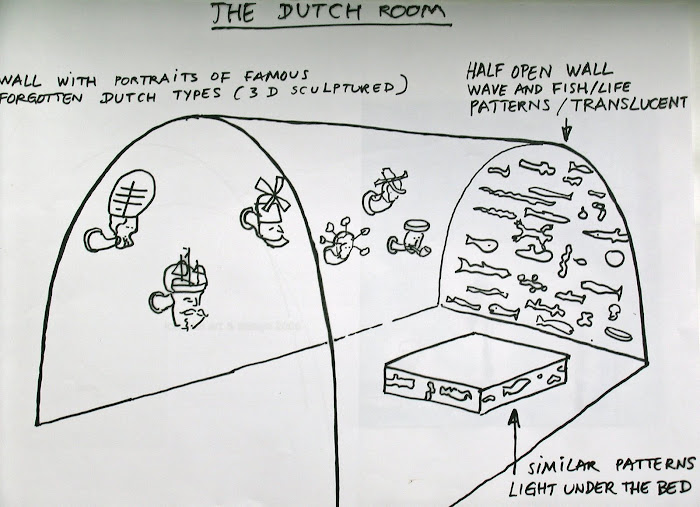 THE DUTCH ROOM
WALL WITH PORTRAITS OF FAMOUS
FORGOTTEN DUTCH TYPES (3 D SCULPTURED)
HALF OPEN WALL
WAVE AND FISH/LIFE
PATTERNS/TRANSLUCENT
SIMILAR PATTERNS
LIGHT UNDER THE BED